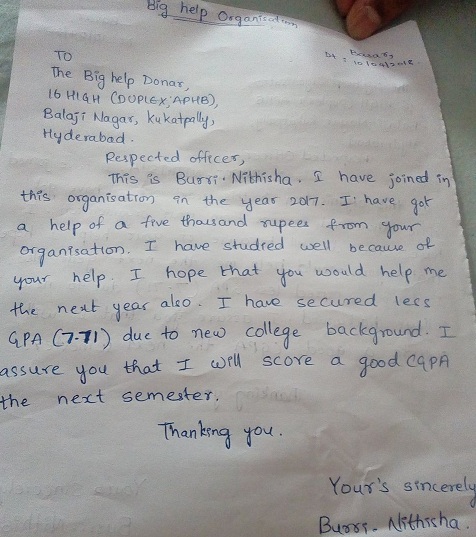 Big help Organisation
Basar,
Dt: 10/04/2018.
TO
The Big help Donar,
16 HIGH (DUPLEX, APHB),
Balaji Nagar, kukatpally,
Hyderabad.
Respected officer,
This is Burri. Nithisha. I have joined in
this organisation in the year 2017. I have got
a help of a five thousand rupees from your
organisation. I have studied well because of
your help. I hope that you would help me
the next year also. I have secured less
GPA (7.71) due to new college background. I
assure you that I will score a good CGPA
the next semester.
Thanking you.
Your's sincerely
Burri. Nithisha.